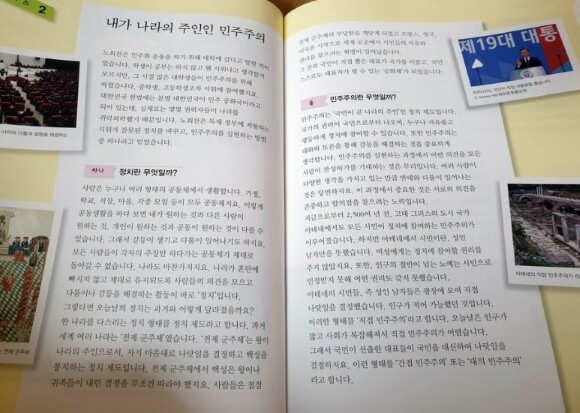 스 2
내가 나라의 주인인 민주주의
노회찬은 민주화 운동을 하기 위해 대학에 갔다고 말한 적이
있습니다. 학생이 공부는 하지 않고 웬 시위냐고 생각할지
모르지만, 그 시절 많은 대학생들이 민주주의를 위해
싸웠습니다. 중학생, 고등학생조차 시위에 참여했지요.
대한민국 헌법에는 분명 대한민국이 민주 공화국이라고
되어 있는데, 실제로는 독재자가 나라를
쥐락펴락했기 때문입니다. 노회찬은 독재 정부에 저항하는
시위가 잘못된 정치를 바꾸고, 민주주의를 실현하는 방법
중 하나라고 믿었습니다.
하나
정치란 무엇일까?
사람은 누구나 여러 형태의 공동체에서 생활합니다. 가정,
학교, 직장, 마을, 각종 모임 등이 모두 공동체지요. 이렇게
공동생활을 하다 보면 내가 원하는 것과 다른 사람이
원하는 것, 개인이 원하는 것과 공동이 원하는 것이 다를 수
있습니다. 그래서 갈등이 생기고 다툼이 일어나기도 하지요.
모든 사람들이 각자의 주장만 하다가는 공동체가 제대로
돌아갈 수 없습니다. 나라도 마찬가지지요. 나라가 혼란에
빠지지 않고 제대로 유지되도록 사람들의 의견을 모으고
다툼이나 갈등을 해결하는 활동이 바로 '정치'입니다.
그렇다면 오늘날의 정치는 과거와 어떻게 달라졌을까요?
한 나라를 다스리는 정치 형태를 정치 제도라고 합니다. 과거
세계 여러 나라는 '전제 군주제'였습니다. '전제 군주제'는 왕이
나라의 주인으로서, 자기 마음대로 나랏일을 결정하고 백성을
통치하는 정치 제도입니다. 전제 군주제에서 백성은 왕이나
귀족들이 내린 결정을 무조건 따라야 했지요. 사람들은 점점
전제 군주제의 부당함을 깨닫게 되었고 프랑스, 영국,
미국을 시작으로 세계 곳곳에서 시민들의 자유와
권리를 찾으려는 혁명이 일어났습니다.
그 결과 국민이 직접 뽑은 대표가 국가를 이끌고, 국민
스스로도 대표자가 될 수 있는 '공화제'가 되었습니다.
둘
민주주의란 무엇일까?
민주주의는 '국민이 곧 나라의 주인'인 정치 제도입니다.
국가의 권력이 국민으로부터 나오며, 누구나 자유롭고
평등하게 정치에 참여할 수 있습니다. 또한 민주주의는
대화와 토론을 통해 갈등을 해결하는 것을 중요하게
생각합니다. 민주주의를 실현하는 과정에서 어떤 의견을 모든
사람이 찬성하기를 기대하는 것은 무리입니다. 여러 사람이
다양한 생각을 가지고 있는 만큼 반대와 다툼이 일어나는
것은 당연하지요. 이 과정에서 중요한 것은 서로의 의견을
존중하고 합의점을 찾으려는 노력입니다.
지금으로부터 2,500여 년 전, 고대 그리스의 도시 국가
아테네에서도 모든 시민이 정치에 참여하는 민주주의가
이루어졌습니다. 하지만 아테네에서 시민이란, 성인
남자만을 뜻했습니다. 여성에게는 정치에 참여할 권리를
주지 않았지요. 또한, 인구의 절반이 넘는 노예는 시민으로
인정받지 못해 어떤 권리도 갖지 못했습니다.
아테네의 시민들, 즉 성인 남자들은 광장에 모여 직접
나랏일을 결정했습니다. 인구가 적어 가능했던 것입니다.
이러한 형태를 '직접 민주주의'라고 합니다. 오늘날은 인구가
많고 사회가 복잡해져서 직접 민주주의가 어렵습니다.
그래서 국민이 선출한 대표들이 국민을 대신하여 나랏일을
결정하지요. 이런 형태를 '간접 민주주의' 또는 '대의 민주주의'
라고 합니다.
제19대 대통